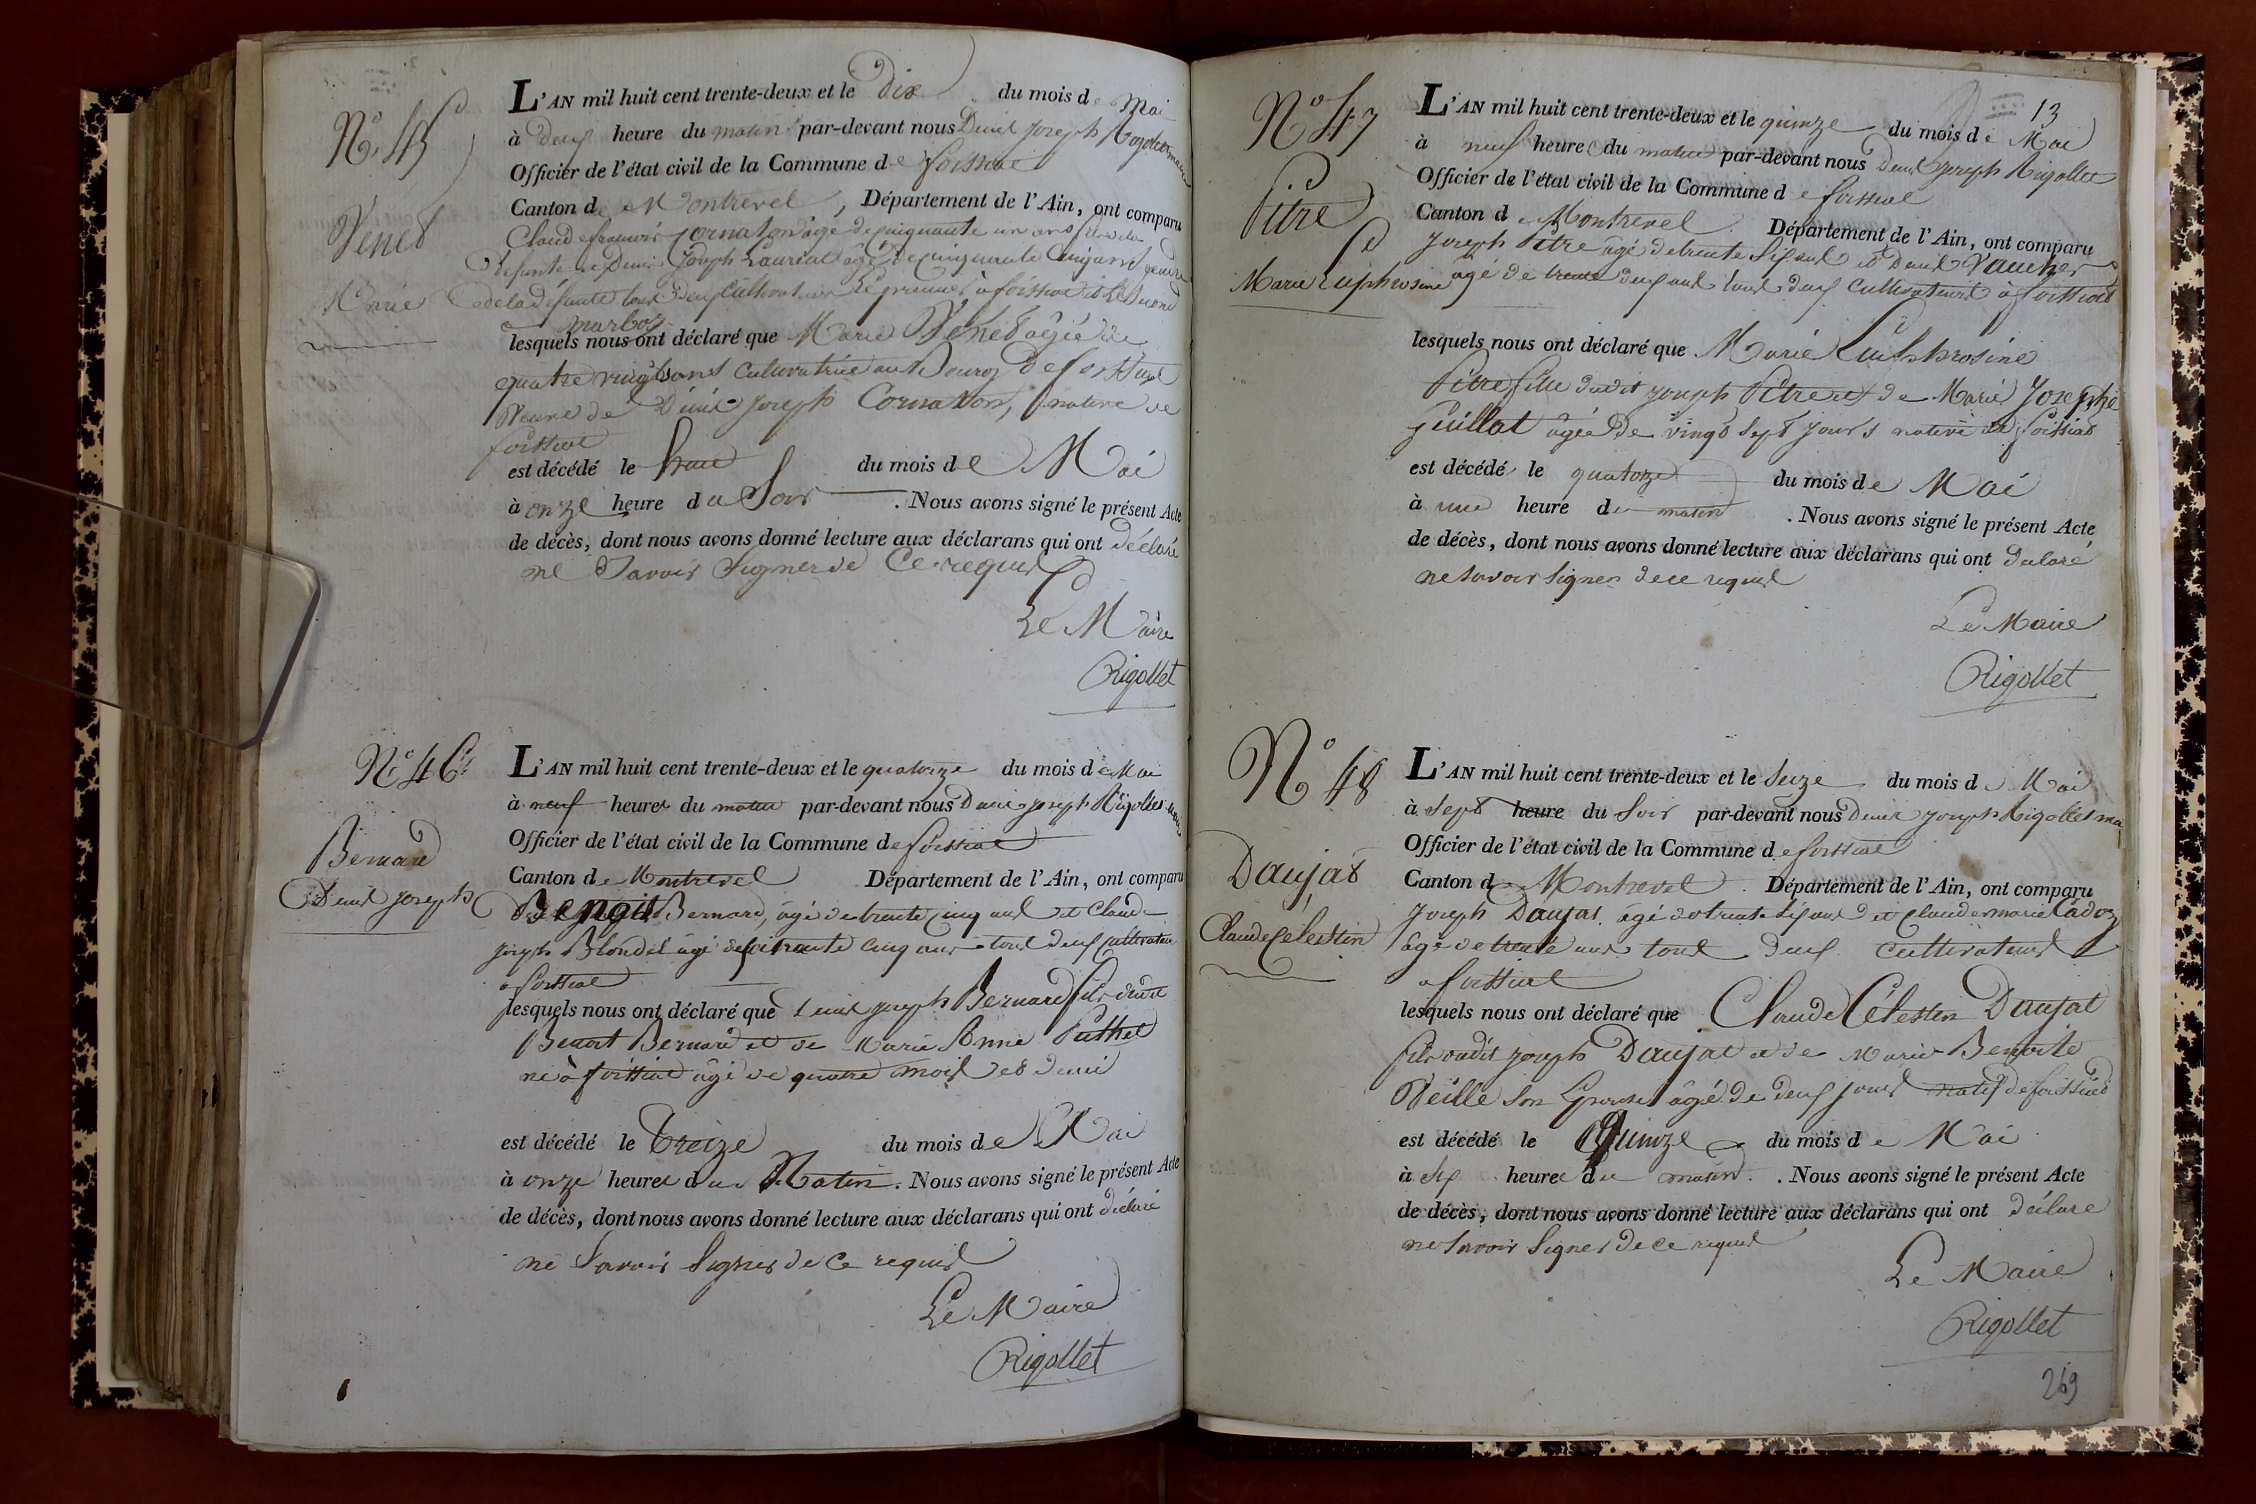 N.° 45
Venet
Marie
L'AN mil huit cent trente-deux et le dix du mois de Mai
à deux heure du matin par-devant nous Denis Joseph Rigollet maire
Officier de l'état civil de la Commune de foissiat
Canton de Montrevel, Département de l'Ain, ont comparu
Claude françois Cornaton âgé de cinquante un ans
défunte et Denis Joseph Laurent âgé de cinquante cinq ans gendre
de la défunte tous deux cultivateurs le premier à foissiat et le second
à marboz
lesquels nous ont déclaré que Marie Venet âgée de
quatre vingts ans cultivatrice au Bourg de foissiat
veuve de Denis Joseph Cornaton, native de
foissiat
est décédé le du mois de Mai
à onze heure du Soir. Nous avons signé le présent Acte
de décès, dont nous avons donné lecture aux déclarans qui ont déclaré
ne Savoir Signer de Ce requis
Le Maire
Rigollet
N.° 46
Bernard
Denis Joseph
L'AN mil huit cent trente-deux et le quatorze du mois de Mai
à neuf heures du matin par-devant nous Denis Joseph Rigollet maire
Officier de l'état civil de la Commune de foissiat
Canton de Montrevel Département de l'Ain, ont comparu
Benoit Bernard, âgé de trente cinq ans et Claude
Joseph Blondel âgé de trente cinq ans tous deux cultivateurs
à foissiat
lesquels nous ont déclaré que Denis Joseph Bernard fils dudit
Benoit Bernard et de Marie Anne Puthet
né à foissiat âgé de quatre mois et demi
est décédé le treize du mois de Mai
à onze heures du Matin. Nous avons signé le présent Acte
de décès, dont nous avons donné lecture aux déclarans qui ont déclaré
ne Savoir Signer de Ce requis
Le Maire
Rigollet
13
N° 47
Pitre
Marie Euphrosine
L'AN mil huit cent trente-deux et le quinze du mois de Mai
à neuf heures du matin par-devant nous Denis Joseph Rigollet
Officier de l'état civil de la Commune de foissiat
Canton de Montrevel Département de l'Ain, ont comparu
Joseph Pitre âgé de trente six ans et Denis Vaucher
âgé de trente deux ans tous deux cultivateurs à foissiat
lesquels nous ont déclaré que Marie Euphrosine
Pitre fille dudit Joseph Pitre et de Marie Josephe
Guillot âgée de vingt sept jours native de foissiat
est décédé le quatorze du mois de Mai
à une heure du matin. Nous avons signé le présent Acte
de décès, dont nous avons donné lecture aux déclarans qui ont déclaré
ne savoir signer de ce requis
Le Maire
Rigollet
N° 48
Daujat
Claude Celestin
L'AN mil huit cent trente-deux et le seize du mois de Mai
à sept heure du soir par-devant nous Denis Joseph Rigollet ma
Officier de l'état civil de la Commune de foissiat
Canton de Montrevel. Département de l'Ain, ont comparu
Joseph Daujat âgé de trente six ans et Claude marie Cadoz
âgé de trente ans tous deux cultivateurs
à foissiat
lesquels nous ont déclaré que Claude Célestin Daujat
fils dudit Joseph Daujat et de Marie Benoite
Veille son Epouse âgé de deux jours natif de foissiat
est décédé le Quinze du mois de Mai
à six heures du matin. Nous avons signé le présent Acte
de décès, dont nous avons donné lecture aux déclarans qui ont déclaré
ne Savoir Signer de ce requis
Le Maire
Rigollet
269